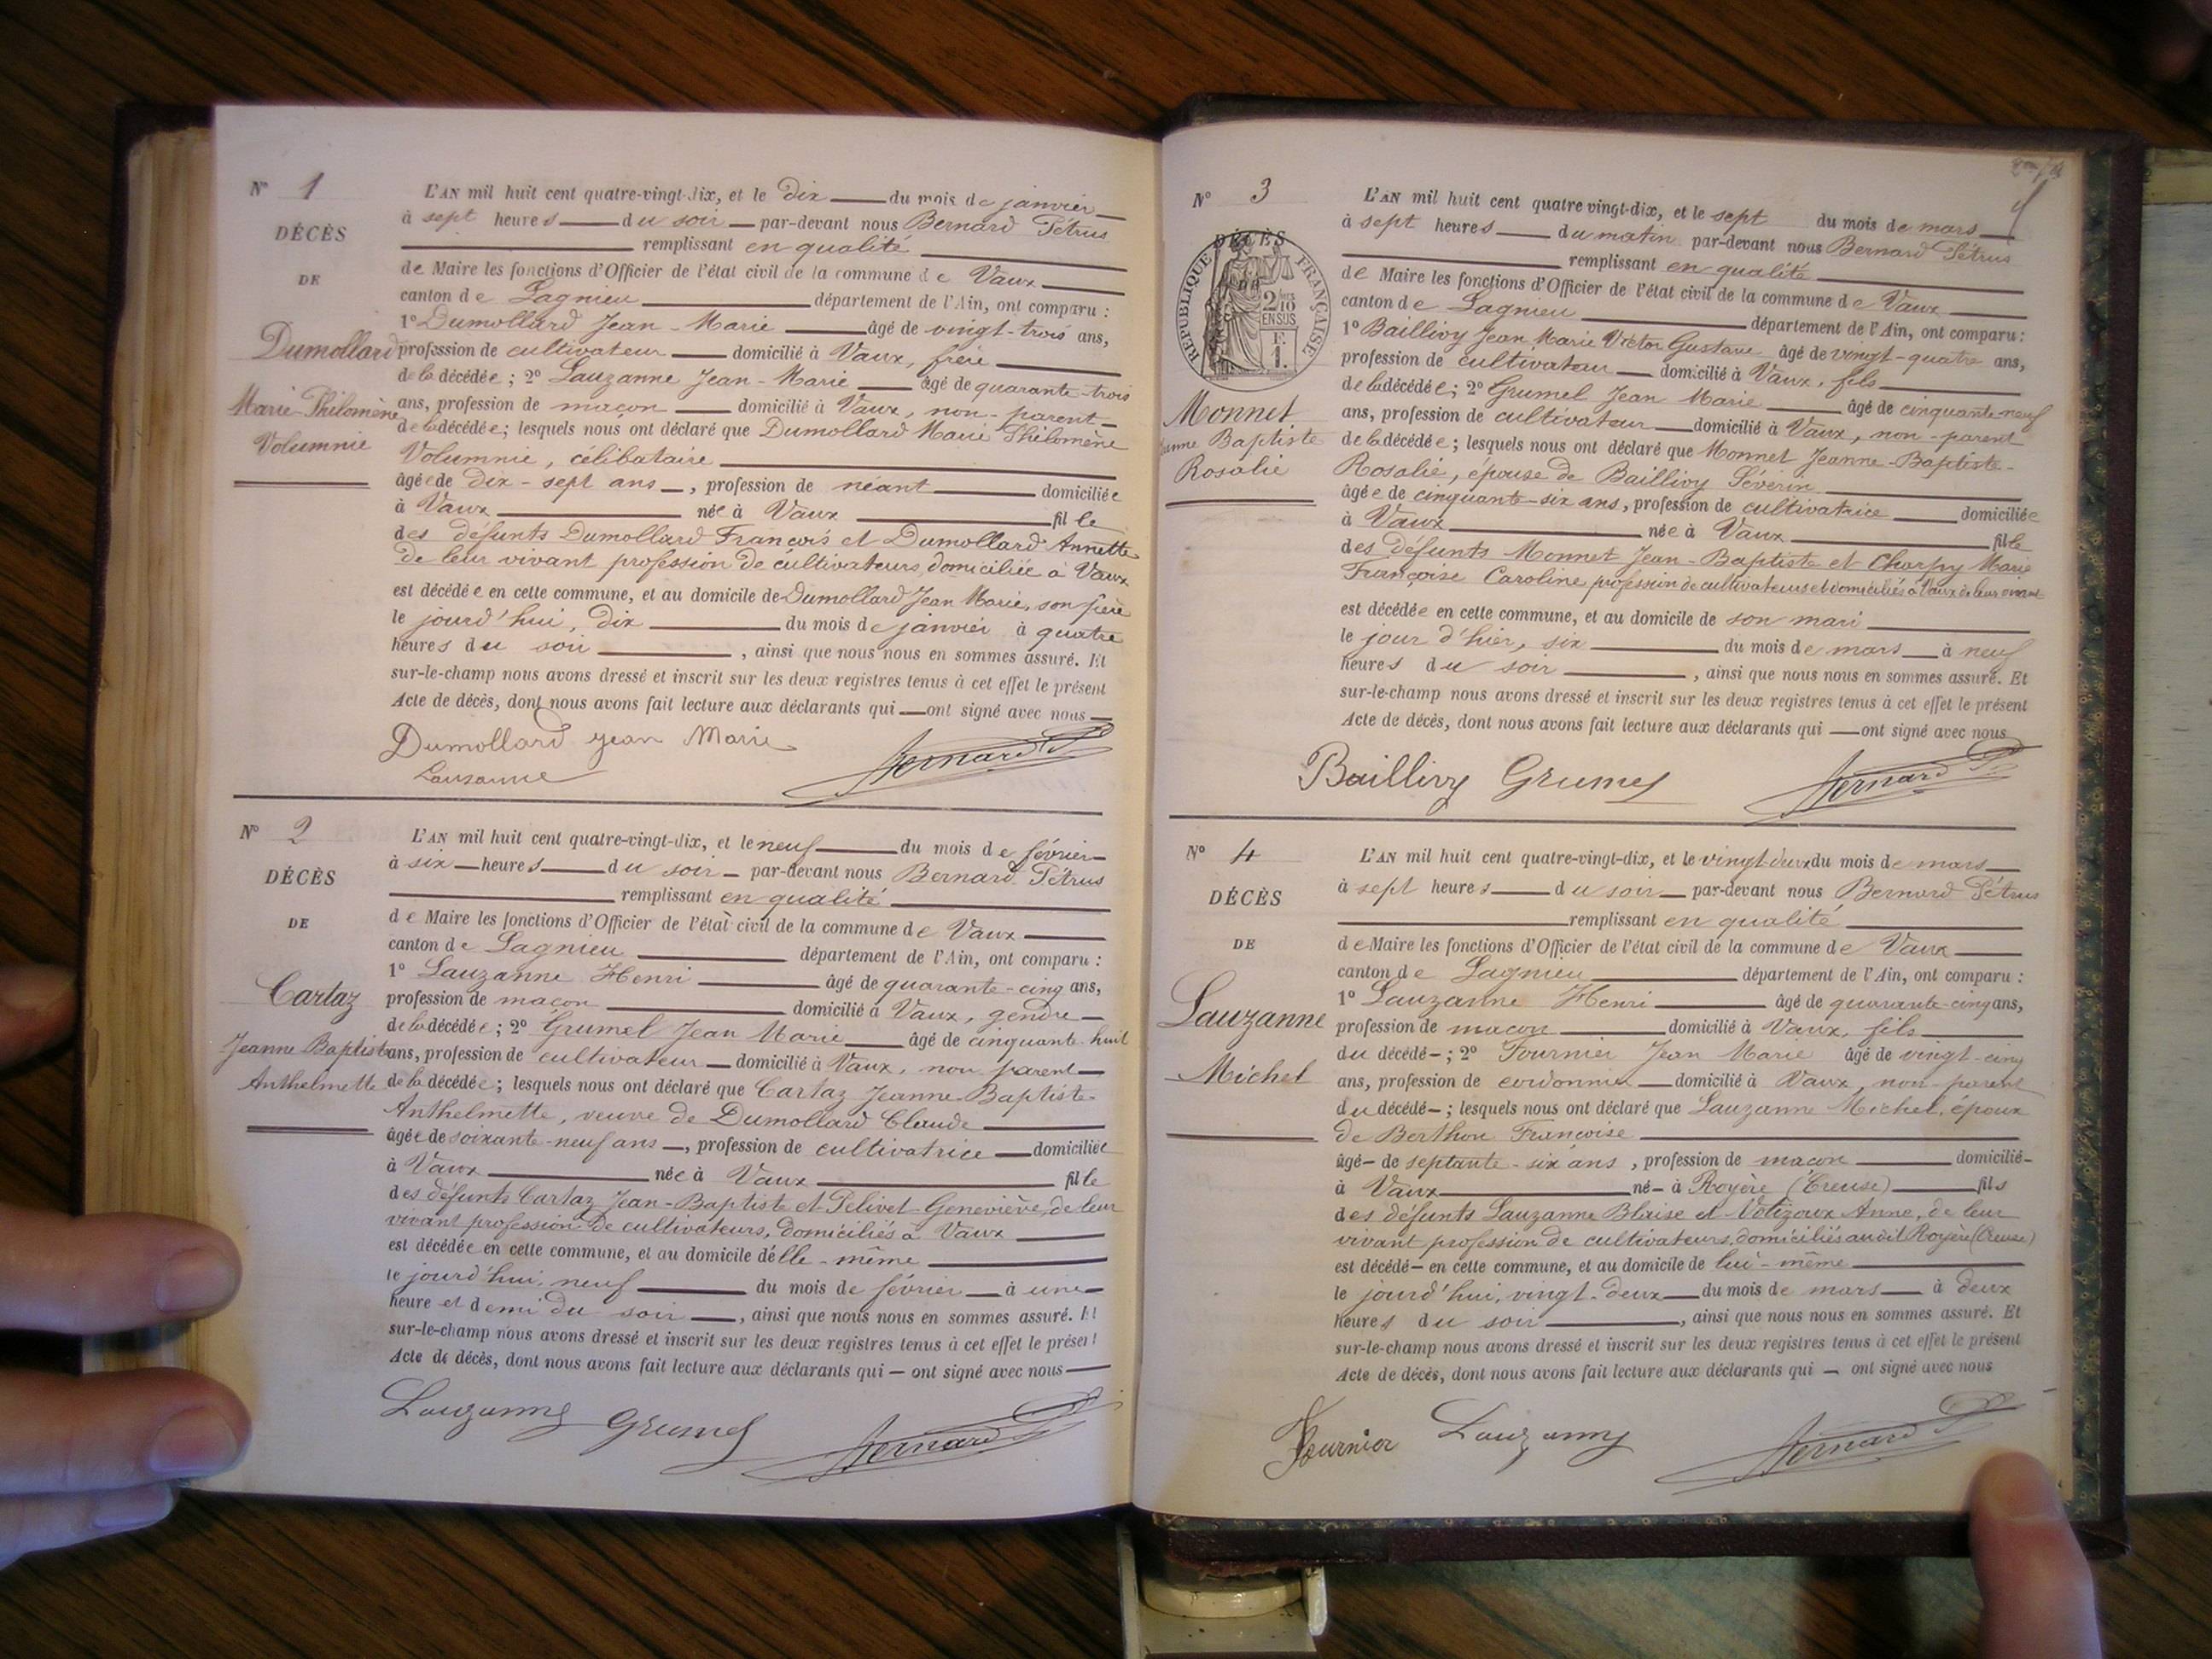 N° 1
DÉCÈS
DE
Dumollard
Marie Philomène
Volumnie
L'AN mil huit cent quatre-vingt-dix, et le dix du mois de janvier
à sept heures du soir par-devant nous Bernard Pétrus
remplissant en qualité
de Maire les fonctions d'Officier de l'état civil de la commune de Vaux
canton de Lagnieu département de l'Ain, ont comparu :
1° Dumollard Jean-Marie âgé de vingt-trois ans,
profession de cultivateur domicilié à Vaux, frère
de la décédée ; 2° Lauzanne Jean-Marie âgé de quarante-trois
ans, profession de maçon domicilié à Vaux, non-parent
de la décédée ; lesquels nous ont déclaré que Dumollard Marie Philomène
Volumnie, célibataire
âgée de dix-sept ans, profession de néant domiciliée
à Vaux née à Vaux fille
des défunts Dumollard François et Dumollard Annette
de leur vivant profession de cultivateurs, domiciliée à Vaux
est décédée en cette commune, et au domicile de Dumollard Jean Marie, son frère
le jourd'hui, dix du mois de janvier à quatre
heures du soir, ainsi que nous nous en sommes assuré. Et
sur-le-champ nous avons dressé et inscrit sur les deux registres tenus à cet effet le présent
Acte de décès, dont nous avons fait lecture aux déclarants qui ont signé avec nous
Dumollard Jean Marie
Lauzanne Bernard P
N° 2
DÉCÈS
DE
Cartaz
Jeanne Baptiste
Anthelmette
L'AN mil huit cent quatre-vingt-dix, et le neuf du mois de février
à six heures du soir par-devant nous Bernard Pétrus
remplissant en qualité
de Maire les fonctions d'Officier de l'état civil de la commune de Vaux
canton de Lagnieu département de l'Ain, ont comparu :
1° Lauzanne Henri âgé de quarante-cinq ans,
profession de maçon domicilié à Vaux, gendre
de la décédée ; 2° Grumel Jean Marie âgé de cinquante-huit
ans, profession de cultivateur domicilié à Vaux, non parent
de la décédée ; lesquels nous ont déclaré que Cartaz Jeanne-Baptiste-
Anthelmette, veuve de Dumollard Claude
âgée de soixante-neuf ans, profession de cultivatrice domiciliée
à Vaux née à Vaux fille
des défunts Cartaz Jean-Baptiste et Pelivet Geneviève, de leur
vivant profession de cultivateurs, domiciliés à Vaux
est décédée en cette commune, et au domicile d'elle-même
le jourd'hui, neuf du mois de février à une
heure et demi du soir, ainsi que nous nous en sommes assuré. Et
sur-le-champ nous avons dressé et inscrit sur les deux registres tenus à cet effet le présent
Acte de décès, dont nous avons fait lecture aux déclarants qui ont signé avec nous
Lauzanne Grumel Bernard P
N° 3
DÉCÈS
RÉPUBLIQUE FRANÇAISE
2/10
EN SUS
F.
1.
Monnet
Jeanne Baptiste
Rosalie
L'AN mil huit cent quatre vingt-dix, et le sept du mois de mars
à sept heures du matin par-devant nous Bernard Pétrus
remplissant en qualité
de Maire les fonctions d'Officier de l'état civil de la commune de Vaux
canton de Lagnieu département de l'Ain, ont comparu :
1° Baillivy Jean Marie Victor Gustave âgé de vingt-quatre ans,
profession de cultivateur domicilié à Vaux, fils
de la décédée ; 2° Grumel Jean Marie âgé de cinquante-neuf
ans, profession de cultivateur domicilié à Vaux, non-parent
de la décédée ; lesquels nous ont déclaré que Monnet Jeanne-Baptiste-
Rosalie, épouse de Baillivy Séverin
âgée de cinquante-six ans, profession de cultivatrice domiciliée
à Vaux née à Vaux fille
des défunts Monnet Jean-Baptiste et Charpy Marie
Françoise Caroline, profession de cultivateurs et domiciliés à Vaux de leur vivant
est décédée en cette commune, et au domicile de son mari
le jour d'hier, six du mois de mars à neuf
heures du soir, ainsi que nous nous en sommes assuré. Et
sur-le-champ nous avons dressé et inscrit sur les deux registres tenus à cet effet le présent
Acte de décès, dont nous avons fait lecture aux déclarants qui ont signé avec nous
Baillivy Grumel Bernard P
N° 4
DÉCÈS
DE
Lauzanne
Michel
L'AN mil huit cent quatre-vingt-dix, et le vingt-deux du mois de mars
à sept heures du soir par-devant nous Bernard Pétrus
remplissant en qualité
de Maire les fonctions d'Officier de l'état civil de la commune de Vaux
canton de Lagnieu département de l'Ain, ont comparu :
1° Lauzanne Henri âgé de quarante-cinq ans,
profession de maçon domicilié à Vaux, fils
du décédé ; 2° Fournier Jean Marie âgé de vingt-cinq
ans, profession de cordonnier domicilié à Vaux, non-parent
du décédé ; lesquels nous ont déclaré que Lauzanne Michel, époux
de Berthou Françoise
âgé de septante-six ans, profession de maçon domicilié
à Vaux né à Royère (Creuse) fils
des défunts Lauzanne Blaise et Anne, de leur
vivant profession de cultivateurs, domiciliés audit Royère (Creuse)
est décédé en cette commune, et au domicile de lui-même
le jourd'hui, vingt-deux du mois de mars à deux
heures du soir, ainsi que nous nous en sommes assuré. Et
sur-le-champ nous avons dressé et inscrit sur les deux registres tenus à cet effet le présent
Acte de décès, dont nous avons fait lecture aux déclarants qui ont signé avec nous
Fournier Lauzanne Bernard P